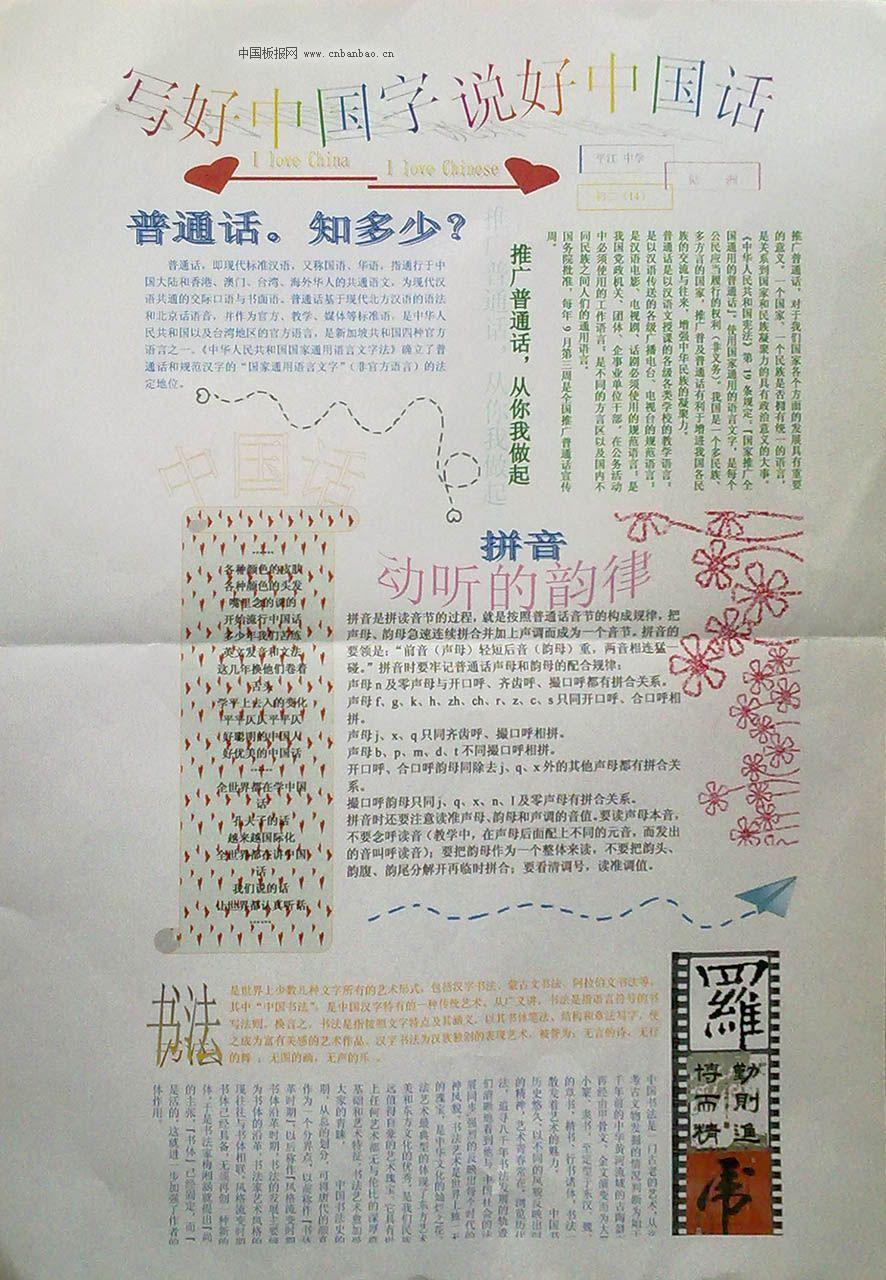 中国板报网 www.cnbanbao.cn
写好中国字 说好中国话
I love China
I love Chinese
平江 中学
初二（14）
普通话。知多少？
普通话，即现代标准汉语，又称国语、华语，指通行于中
国大陆和香港、澳门、台湾、海外华人的共通语文，为现代汉
语共通的交际口语与书面语。普通话基于现代北方汉语的语法
和北京话语音，并作为官方、教学、媒体等标准语，是中华人
民共和国以及台湾地区的官方语言，是新加坡共和国四种官方
语言之一。《中华人民共和国国家通用语言文字法》确立了普
通话和规范汉字的“国家通用语言文字”（非官方语言）的法
定地位。
推广普通话，从你我做起
推广普通话，对于我们国家各个方面的发展具有重要
的意义。一个国家、一个民族是否拥有统一的语言，
是关系到国家和民族凝聚力的具有政治意义的大事。
《中华人民共和国宪法》第 19 条规定：『国家推广全
国通用的普通话』。使用国家通用的语言文字，是每个
公民应当履行的权利（非义务）。我国是一个多民族、
多方言的国家，推广普及普通话有利于增进我国各民
族的交流与往来，增强中华民族的凝聚力。
普通话是以汉语文授课的各级各类学校的教学语言；
是以汉语传送的各级广播电台、电视台的规范语言；
是汉语电影、电视剧、话剧必须使用的规范语言；是
我国党政机关、团体、企事业单位干部，在公务活动
中必须使用的工作语言；是不同的方言区以及国内不
同民族之间人们的通用语言。
国务院批准，每年 9 月第三周是全国推广普通话宣传
周。
中国话
------
各种颜色的皮肤
各种颜色的头发
嘴里念的说的
开始流行中国话
多少年我们苦练
英文发音和文法
这几年换他们卷着
舌头
学平上去入的变化
平平仄仄平平仄
好聪明的中国人
好优美的中国话
------
全世界都在学中国
话
孔夫子的话
越来越国际化
全世界都在讲中国
话
我们说的话
让世界都认真听话
------
拼音
动听的韵律
拼音是拼读音节的过程，就是按照普通话音节的构成规律，把
声母、韵母急速连续拼合并加上声调而成为一个音节。拼音的
要领是：“前音（声母）轻短后音（韵母）重，两音相连猛一
碰。”拼音时要牢记普通话声母和韵母的配合规律：
声母 n 及零声母与开口呼、齐齿呼、撮口呼都有拼合关系。
声母 f、g、k、h、zh、ch、r、z、c、s 只同开口呼、合口呼相
拼。
声母 j、x、q 只同齐齿呼、撮口呼相拼。
声母 b、p、m、d、t 不同撮口呼相拼。
开口呼、合口呼韵母同除去 j、q、x 外的其他声母都有拼合关
系。
撮口呼韵母只同 j、q、x、n、l 及零声母有拼合关系。
拼音时还要注意读准声母、韵母和声调的音值。要读声母本音，
不要念呼读音（教学中，在声母后面配上不同的元音，而发出
的音叫呼读音）；要把韵母作为一个整体来读，不要把韵头、
韵腹、韵尾分解开再临时拼合；要看清调号，读准调值。
书法
是世界上少数几种文字所有的艺术形式，包括汉字书法、蒙古文书法、阿拉伯文书法等。
其中“中国书法”，是中国汉字特有的一种传统艺术。从广义讲，书法是指语言符号的书
写法则。换言之，书法是指按照文字特点及其涵义，以其书体笔法、结构和章法写字，使
之成为富有美感的艺术作品。汉字书法为汉族独创的表现艺术，被誉为：无言的诗，无行
的舞；无图的画，无声的乐。
中国书法是一门古老的艺术，从
考古文物发掘的情况判断
千年前的中华黄河流域的古陶
再经由甲骨文、金文演变而为大
小篆、隶书，至定型于东汉、魏、
的草书、楷书、行书诸体，书法一
散发着艺术的魅力。 中国书
历史悠久，以不同的风貌反映出时
的精神，艺术青春常在。浏览历代
法艺术最典型的体现了东方艺术
美和东方文化的优秀，是我们民族
远值得自豪的艺术瑰宝。它具有世
上任何艺术都无与伦比的深厚群
基础和艺术特征。书法艺术愈加受
大家的青睐。 中国书法史的
期，从总的划分，可将唐代的颜真
作为一个分界点，以前称作『书体
革时期』，以后称作『风格流变时期
书体沿革时期，书法的发展主要倾
为书体的沿革，书法家艺术风格的
现往往与书体相联。风格流变时期
书体已经具备，无须再创一种新的
体，于是书法家
的主张。『书体』已经固定，而『
是活的，这就进一步加强了作者的
体作用。
羅
勤則進
博而精
虎